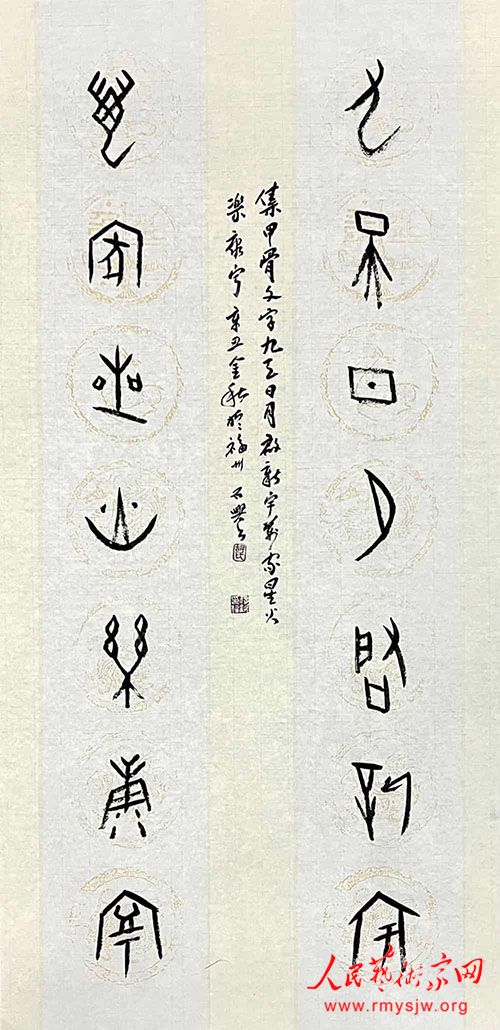 九天日月启新宇
万家星火乐康宁
集甲骨文字九天日月啟新宇萬家星火
樂康宁辛丑金秋於福州石興
人民藝術家网
www.rmysjw.org